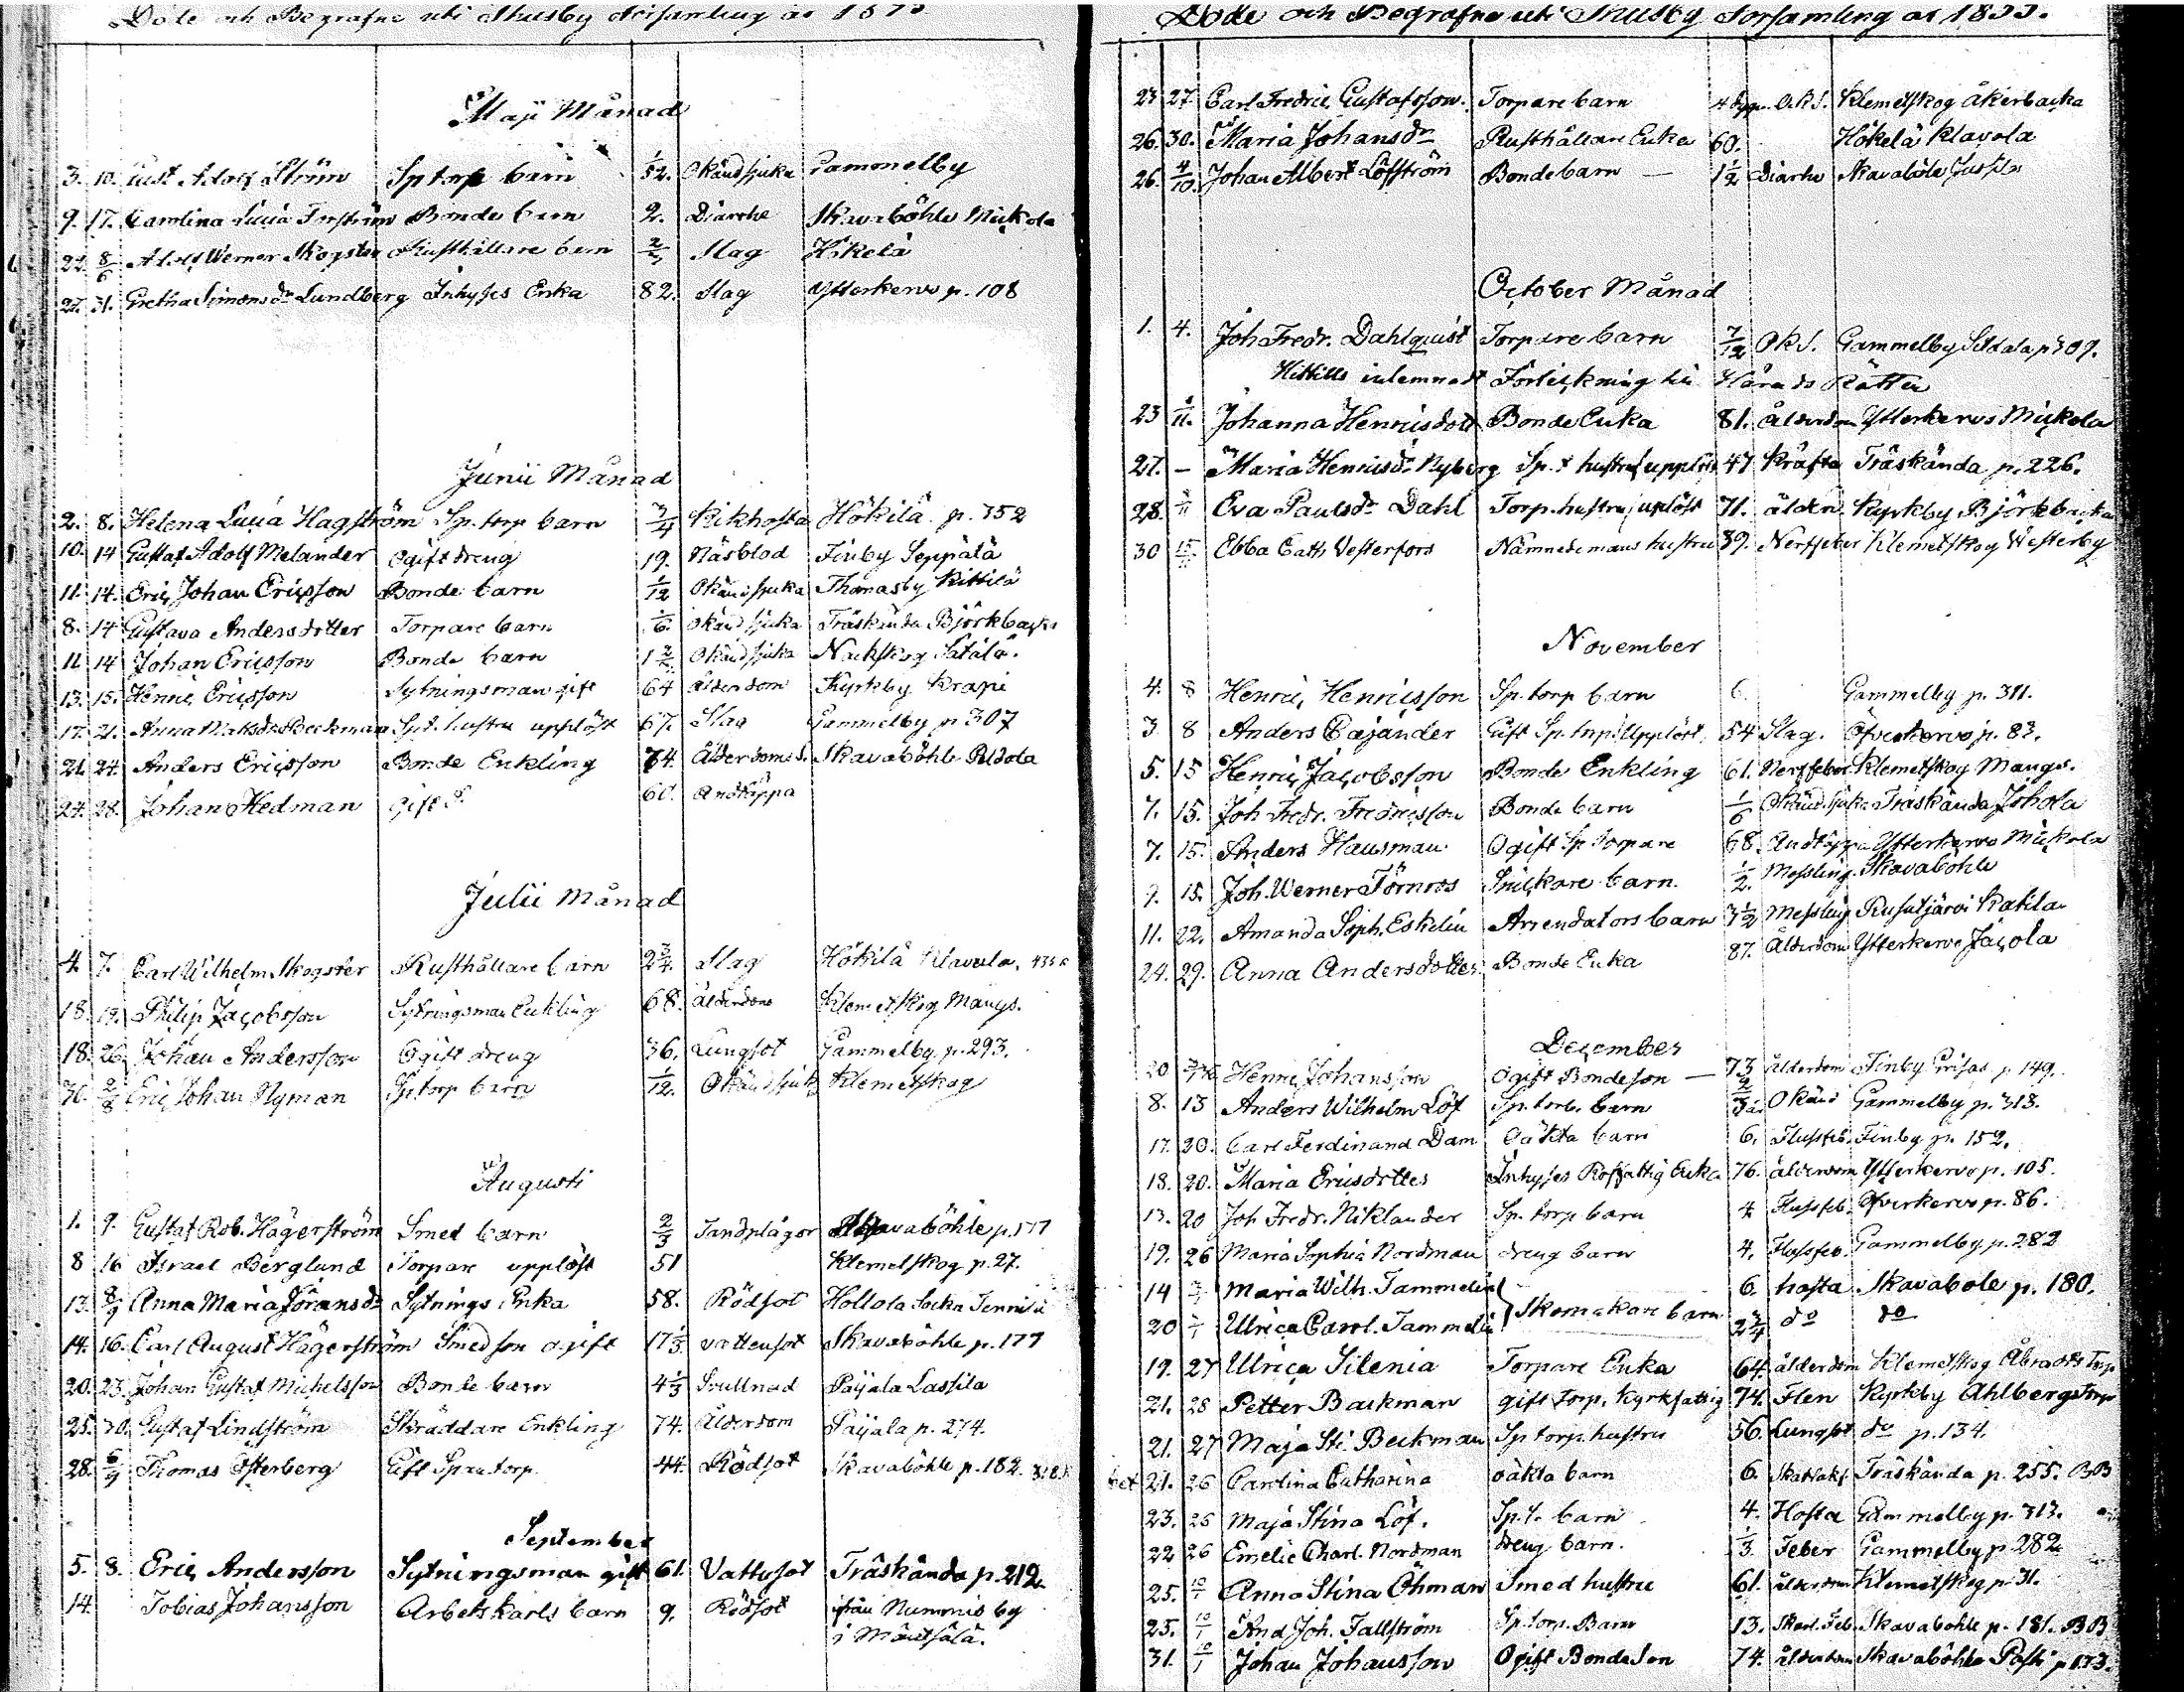 Döde och Begrafne uti Thusby Församling år
Maji Månad
3. 10. Gust Adolf Ström Sp torp barn 1/52. Okänd sjuka Gammelby
9. 17. Carolina Lucia Bonde barn 2. Diarrhe Skavaböhle Mickola
22. 8/6 Adolf Werner Skogster Rusthållare barn Slag Hökelä
27. 31. Gretha Simonsdr Lundberg Inhyses Enka 82. Slag Ytterkervo p. 108
Junii Månad
2. 8. Helena Lucia Hagström Sp. torp barn 3/4 Kikhosta Hökilä p. 352
10. 14 Gustaf Adolf Melander Ogift dreng 19. Näsblod Finby Seppälä
11. 14. Eric Johan Ericsson Bonde barn 1/12 Okänd sjuka Thomasby Kittilä
8. 14 Gustava Andersdotter Torpare barn 1/6. Okänd sjuka Träskända Björkbacka
11 14 Johan Ericsson Bonde barn 1 Okänd sjuka Nackskog Sätälä.
13. 15. Henric Ericsson Sytningsman gift 64 ålderdom Kyrkby Krapi
17. 21. Anna Matsdr Beckman Spt. hustru upplöst 67. Slag Gammelby p. 307
21. 24. Anders Ericsson Bonde Enkling 74. Ålderdoms. Skavaböhle Peldola
24. 28. Johan Hedman gift 60. Andtäppa
Julii Månad
4. 7. Carl Wilhelm Skogster Rusthållare barn 2 3/4. Slag Hökilä Klavola.
18. 19. Philip Jacobsson Sytningsman Enkling 68. ålderdom Klemetskog Mangs.
18. 26 Johan Andersson Ogift dreng 36. Lungsot Gammelby p. 293.
2/8 Eric Johan Nyman Sp. torp barn 1/12. Okänd sjuka Klemetskog
Augusti
1. 9. Gustaf Rob. Hägerström Smed barn 2/3 Tandplågor Skavaböhle p. 177
8 16 Israel Berglund Torpare upplöst 51 Klemetskog p. 27.
13. 8/9 Anna Maria Göransdr Sytnings Enka 58. Rödsot Hollola Socka
14. 16. Carl August Hägerström Smedson ogift 17 1/3 vattusot Skavaböhle p. 177
20. 23. Johan Gustaf Michelsson Bonde barn 4 1/3 Svullnad Paijala Lassila
25. 30. Gustaf Lindström Skräddare Enkling 74. Ålderdom Paijala p. 274.
28. 6/9 Thomas Österberg Gift Sp. torp. 44. Rödsot Skavaböhle p. 182.
September
5. 8. Eric Andersson Sytningsman gift 61. Vattusot Träskända p. 212.
14. Tobias Johansson Arbets Karls barn 9. Rödsot ifrån Nummis by
i Mäntsälä.
Döde och Begrafne uti Thusby Församling år 1833.
23 27 Carl Fredric Gustafsson. Torpare barn Ok S. Klemetskog åkerbacka
26. 30. Maria Johansdr Rusthållare Enka 60. Hökelä Klavola
26. 4/10. Johan Albert Löfström Bonde barn — 1 1/2 Diarhe Skavaböle Jussila
October Månad
1. 4. Joh Fredr. Dahlquist Torpare barn 7/12 Ok S. Gammelby p 309.
Hittills inlemnadt Förteckning till Härads Rätten
23 11. Johanna Henricsdott Bonde Enka 81. ålderdom Ytterkervo Mickola
27. — Maria Henricsdr Nyberg Sp. t hustru upplöst 47 kräfta Träskända p. 226.
28. Eva Paulsdr Dahl Torp. hustru uplöst 71. ålderd. Kyrkby Björkbacka
30 15/11 Ebba Cath Vesterfors Nämndemans hustru 39. Nerffeber Klemetskog Westerby
November
4. 8 Henric Henricsson Sp. torp barn 6. Gammelby p. 311.
3 8 Anders Cajander Gift Sp. torp. Upplöst. 54 Slag. Öfverkervo p. 83.
5. 15 Henric Jacobsson Bonde Enkling 61. Nerffeber Klemetskog Mangs.
7. 15. Joh Fredr. Fredricsson Bonde barn 1/6 Okänd sjuka Träskända Johola
7. 15. Anders Hausman Ogift Sp. torpare 68. Andtäppa Ytterkervo Mickola
9. 15. Joh. Werner Törnros Snickare barn. 1/2. Messling. Skavaböhle
11. 22. Amanda Soph. Eskelin Arrendators barn 3 1/2 Messling Rusutjärvi Kakla
24. 29. Anna Andersdotter Bonde Enka 87. Ålderdom Ytterkervo Jacola
December
20 Henric Johansson Ogift Bondeson — 73 ålderdom Finby p. 149.
8. 13 Anders Wilhelm Löf Sp. torp. barn 2/3 Okänd Gammelby p. 318.
17. 20. Carl Ferdinand Dam Oäkta barn 6. Flussfeb. Finby p. 152.
18. 20. Maria Ericsdotter Inhyses Rotfattig Enka 76. ålderdom Ytterkervo p. 105.
13. 20 Joh Fredr. Niklander Sp. torp barn 4 Flussfeb. Öfverkervo p. 86.
19. 26 Maria Sophia Nordman dreng barn 4. Flussfeb. Gammelby p. 282
14 Maria Wilh. Tammelin 6. hosta Skavabole p. 180.
20 Ulrica Carol. Tammelin Skomakare barn 2 3/4 do do
19. 27 Ulrica Silenia Torpare Enka 64. ålderdom Klemetskog Åbraots Torp
21. 28 Petter Backman gift torp. Kyrkfattig 74. Flen Kyrkby Ahlbergs torp
21. 27 Maja Sti. Beckman Sp torp. hustru 56. Lungsot do p. 134.
21. 26 Carolina Catharina oäkta barn 6. Träskända p. 255. BB
23. 26 Maja Stina Löf. Sp. t. barn 4. Hosta Gammelby p. 313.
22 26 Emelie Charl. Nordman dreng barn. 1/3. Feber Gammelby p. 282
25. 10/1 Anna Stina Öhman Smed hustru 61. ålderdom Klemetskog p. 31.
25. 10/1 And Joh. Tallström Sp. torp. Barn 13. Skarl. Feb. Skavabohle p. 181. BB
31. 10/1 Johan Johansson Ogift BondeSon 74. ålderdom Skavaböhle Pasti p 173.